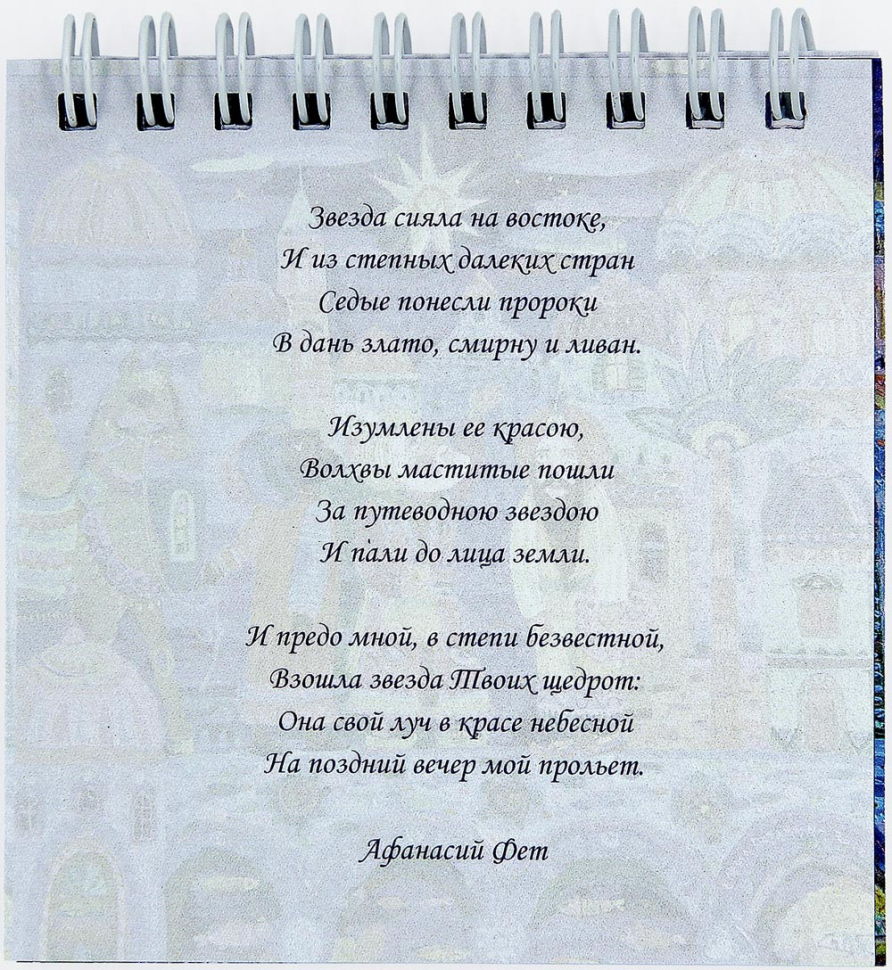 Звезда сияла на востоке,
И из степных далеких стран
Седые понесли пророки
В дань злато, смирну и ливан.
Изумлены ее красою,
Волхвы маститые пошли
За путеводною звездою
И пали до лица земли.
И предо мной, в степи безвестной,
Взошла звезда Твоих щедрот:
Она свой луч в красе небесной
На поздний вечер мой прольет.
Афанасий Фет